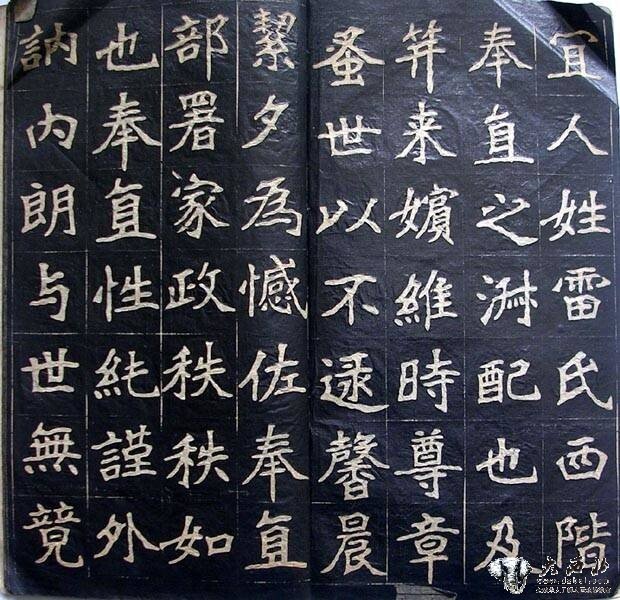 宜人姓雷氏西階
奉直之淑配也及
笄来嬪維時尊章
蚤世以不逮馨晨
絜夕為憾佐奉直
部署家政秩秩如
也奉直性純謹外
訥内朗与世無競